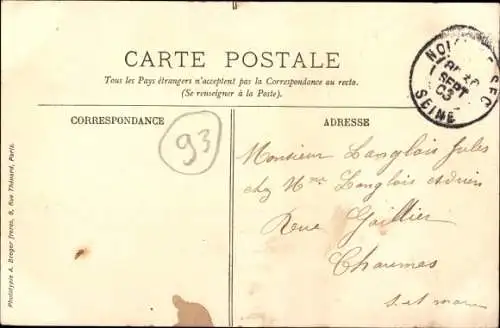 CARTE POSTALE
Tous les Pays étrangers n'acceptent pas la Correspondance au recto.
(Se renseigner à la Poste).
CORRESPONDANCE
ADRESSE
93
NOI SEC
SEPT
03
SEINE
Monsieur Langlois Jules
chez Mme Langlois
Rue Gallier
Chaumes
S. et marne
Phototypie A. Breger Frères, 9, Rue Thénard, Paris.